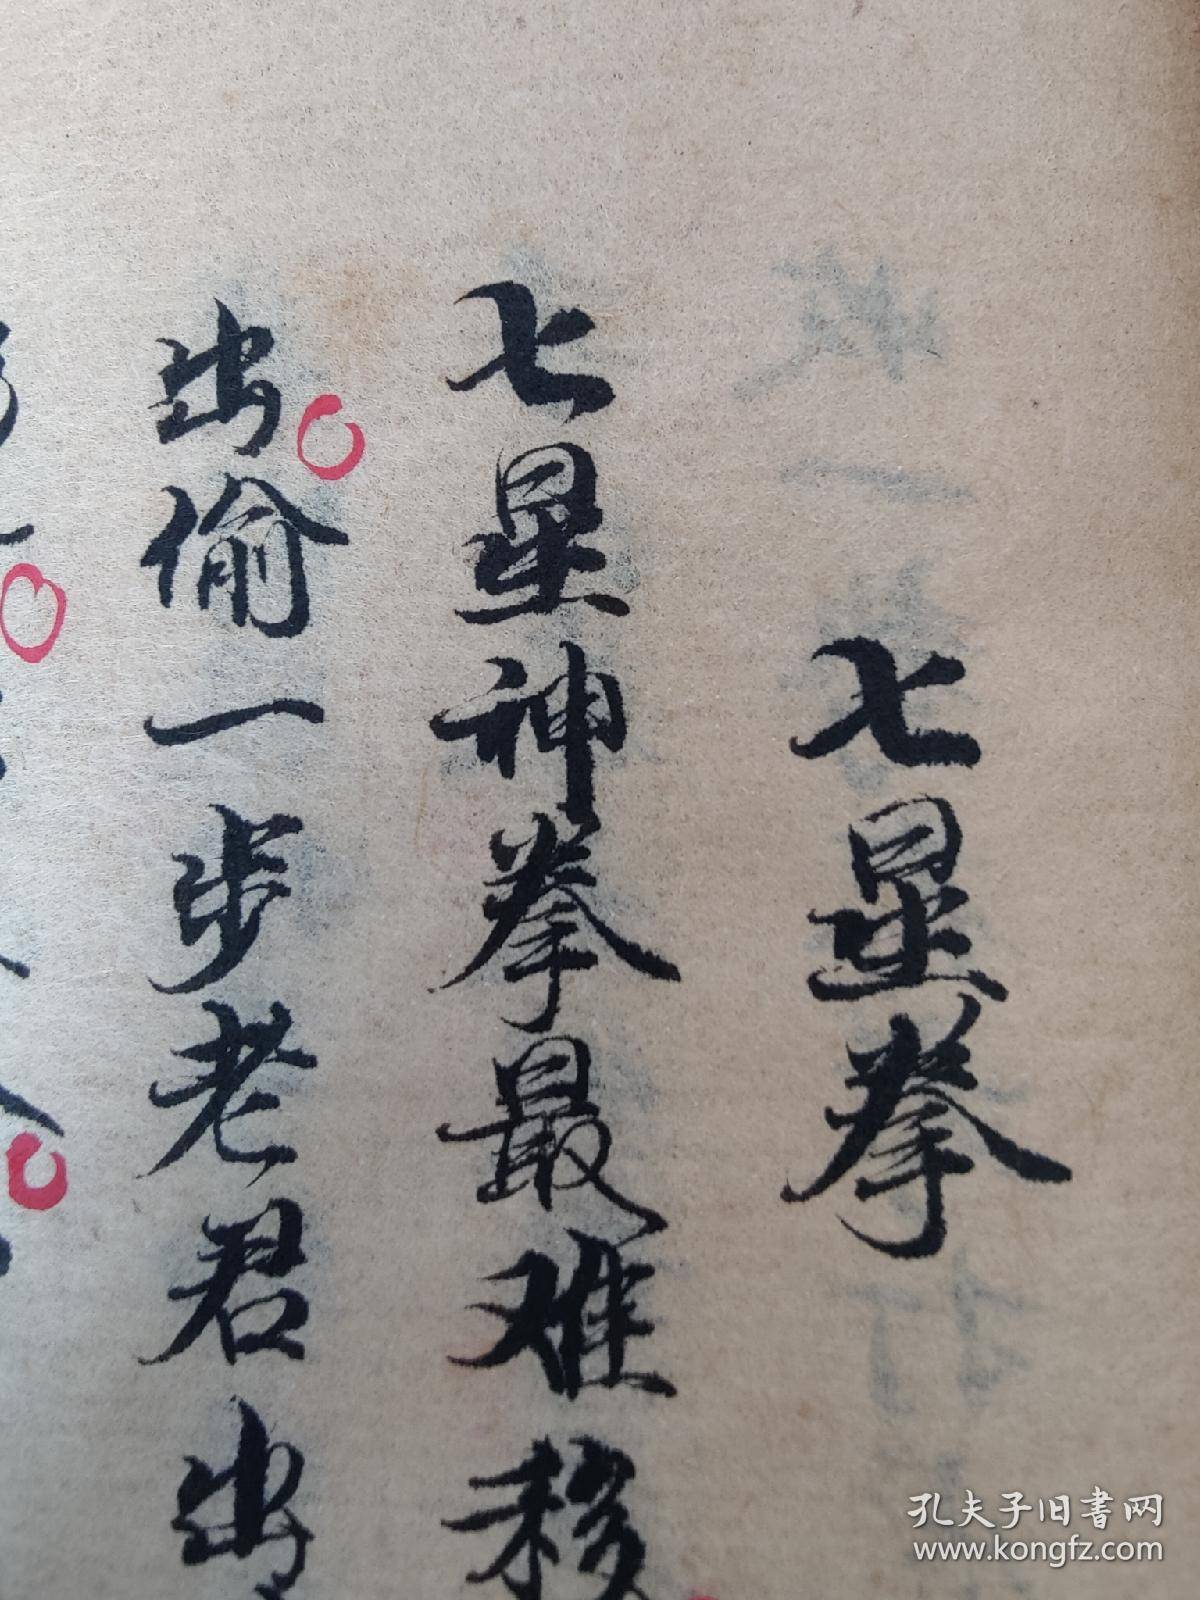 七星拳
七星神拳最难移
出偷一步老君出
孔夫子旧书网
www.kongfz.com